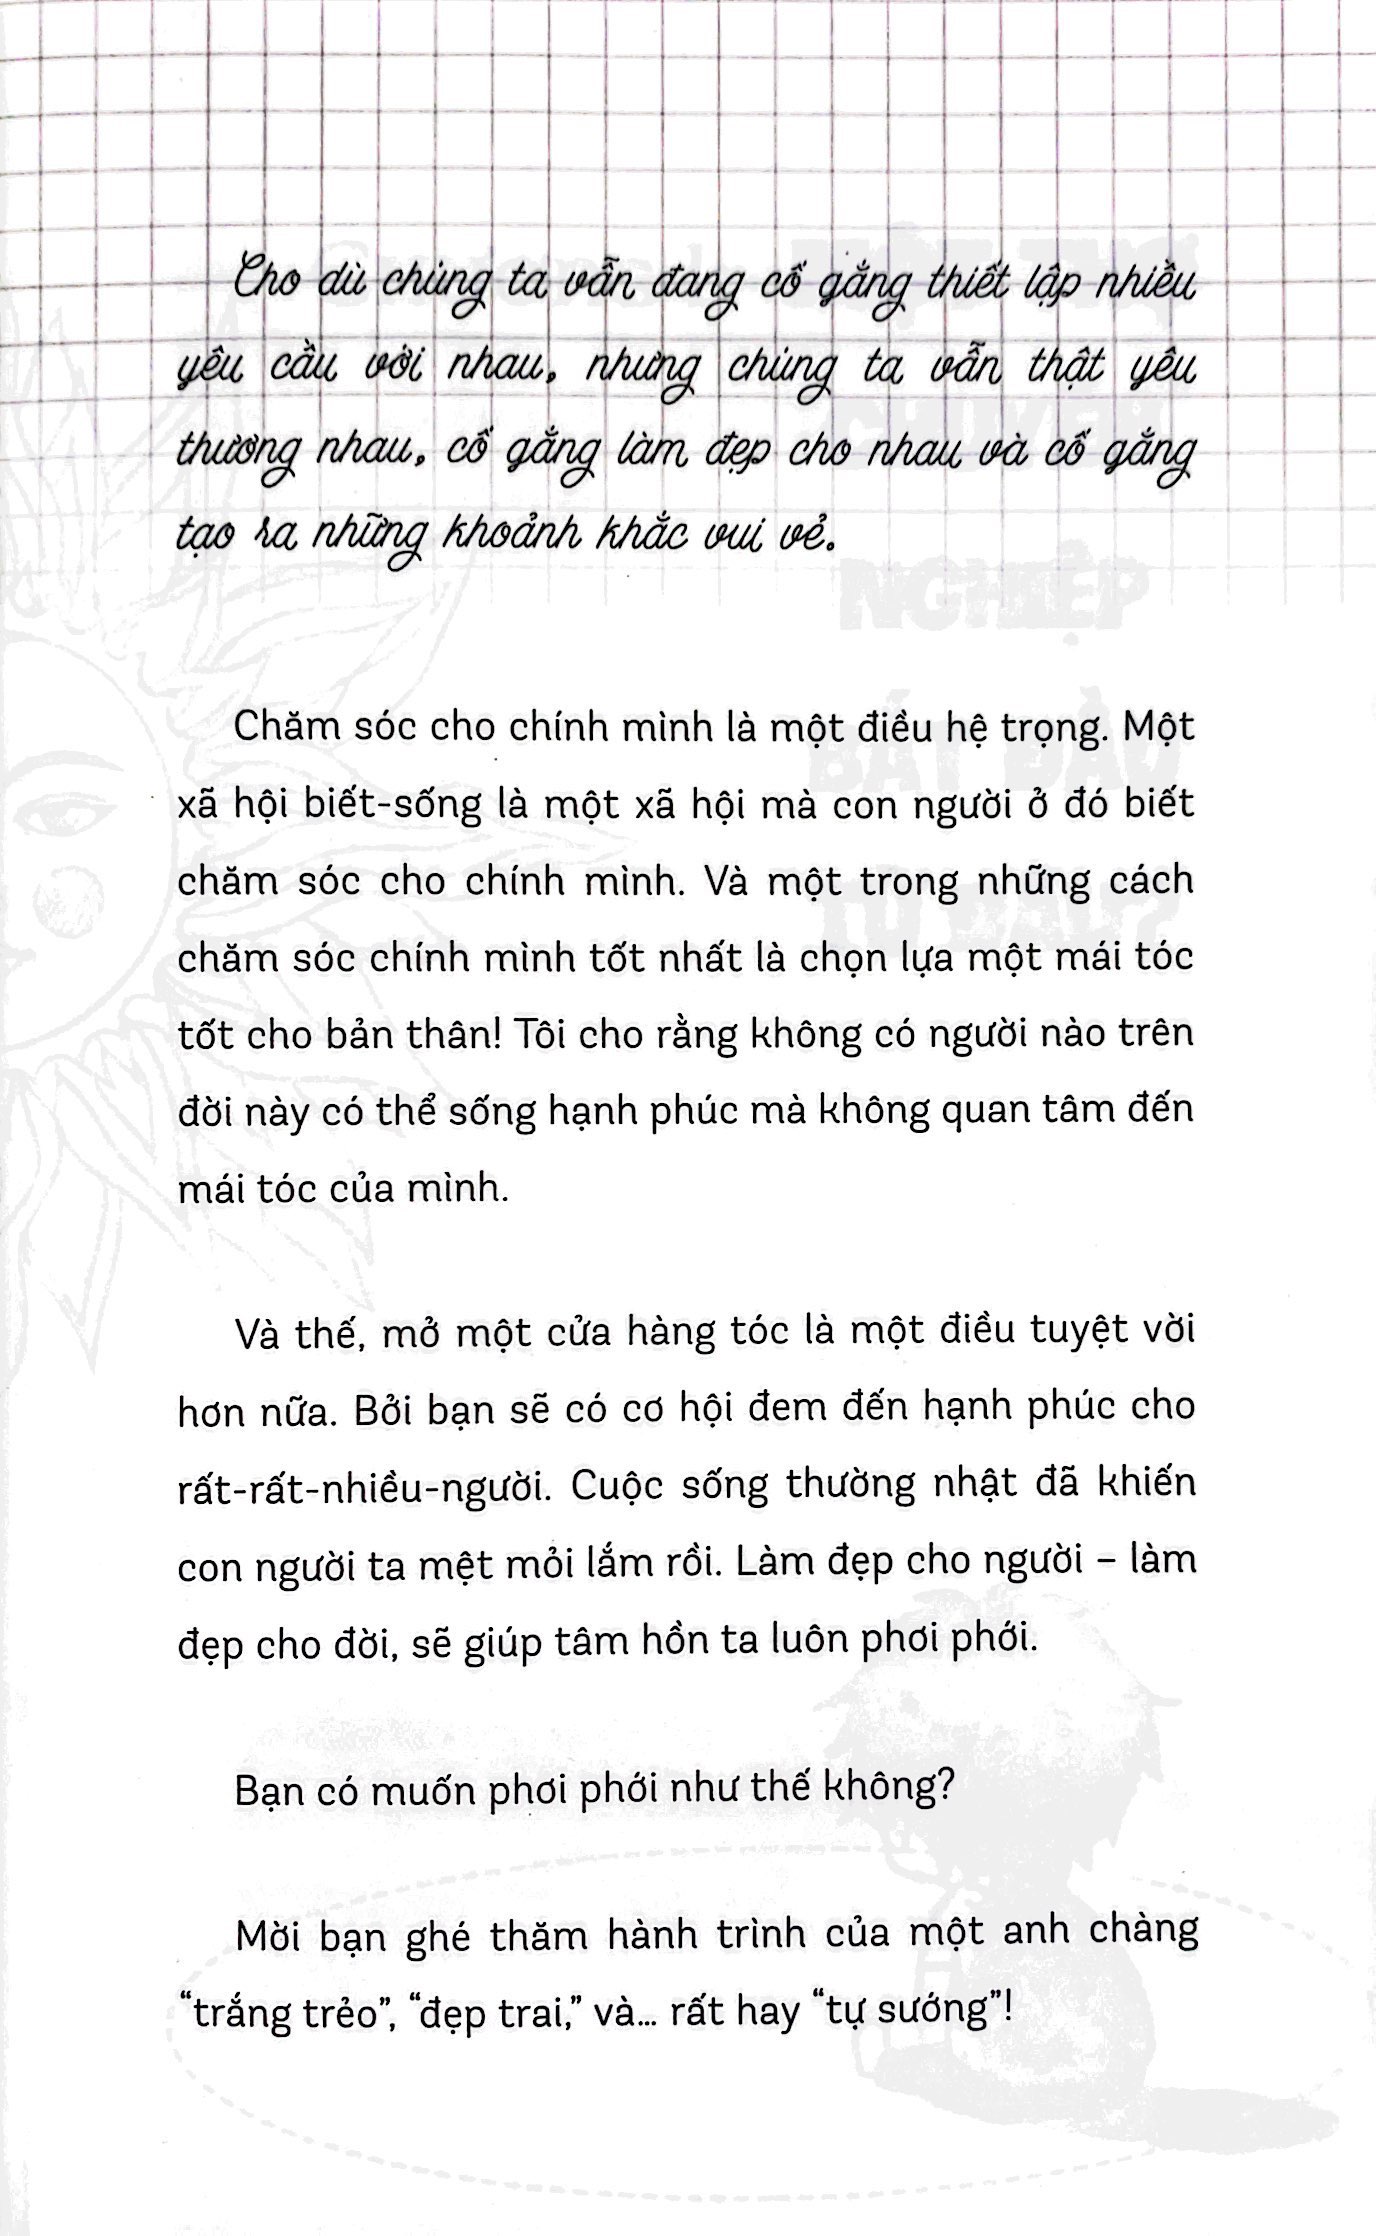 Cho dù chúng ta vẫn đang cố gắng thiết lập nhiều
yêu cầu với nhau, nhưng chúng ta vẫn thật yêu
thương nhau, cố gắng làm đẹp cho nhau và cố gắng
tạo ra những khoảnh khắc vui vẻ.
Chăm sóc cho chính mình là một điều hệ trọng. Một
xã hội biết-sống là một xã hội mà con người ở đó biết
chăm sóc cho chính mình. Và một trong những cách
chăm sóc chính mình tốt nhất là chọn lựa một mái tóc
tốt cho bản thân! Tôi cho rằng không có người nào trên
đời này có thể sống hạnh phúc mà không quan tâm đến
mái tóc của mình.
Và thế, mở một cửa hàng tóc là một điều tuyệt vời
hơn nữa. Bởi bạn sẽ có cơ hội đem đến hạnh phúc cho
rất-rất-nhiều-người. Cuộc sống thường nhật đã khiến
con người ta mệt mỏi lắm rồi. Làm đẹp cho người – làm
đẹp cho đời, sẽ giúp tâm hồn ta luôn phơi phới.
Bạn có muốn phơi phới như thế không?
Mời bạn ghé thăm hành trình của một anh chàng
“trắng trẻo”, “đẹp trai,” và... rất hay “tự sướng”!